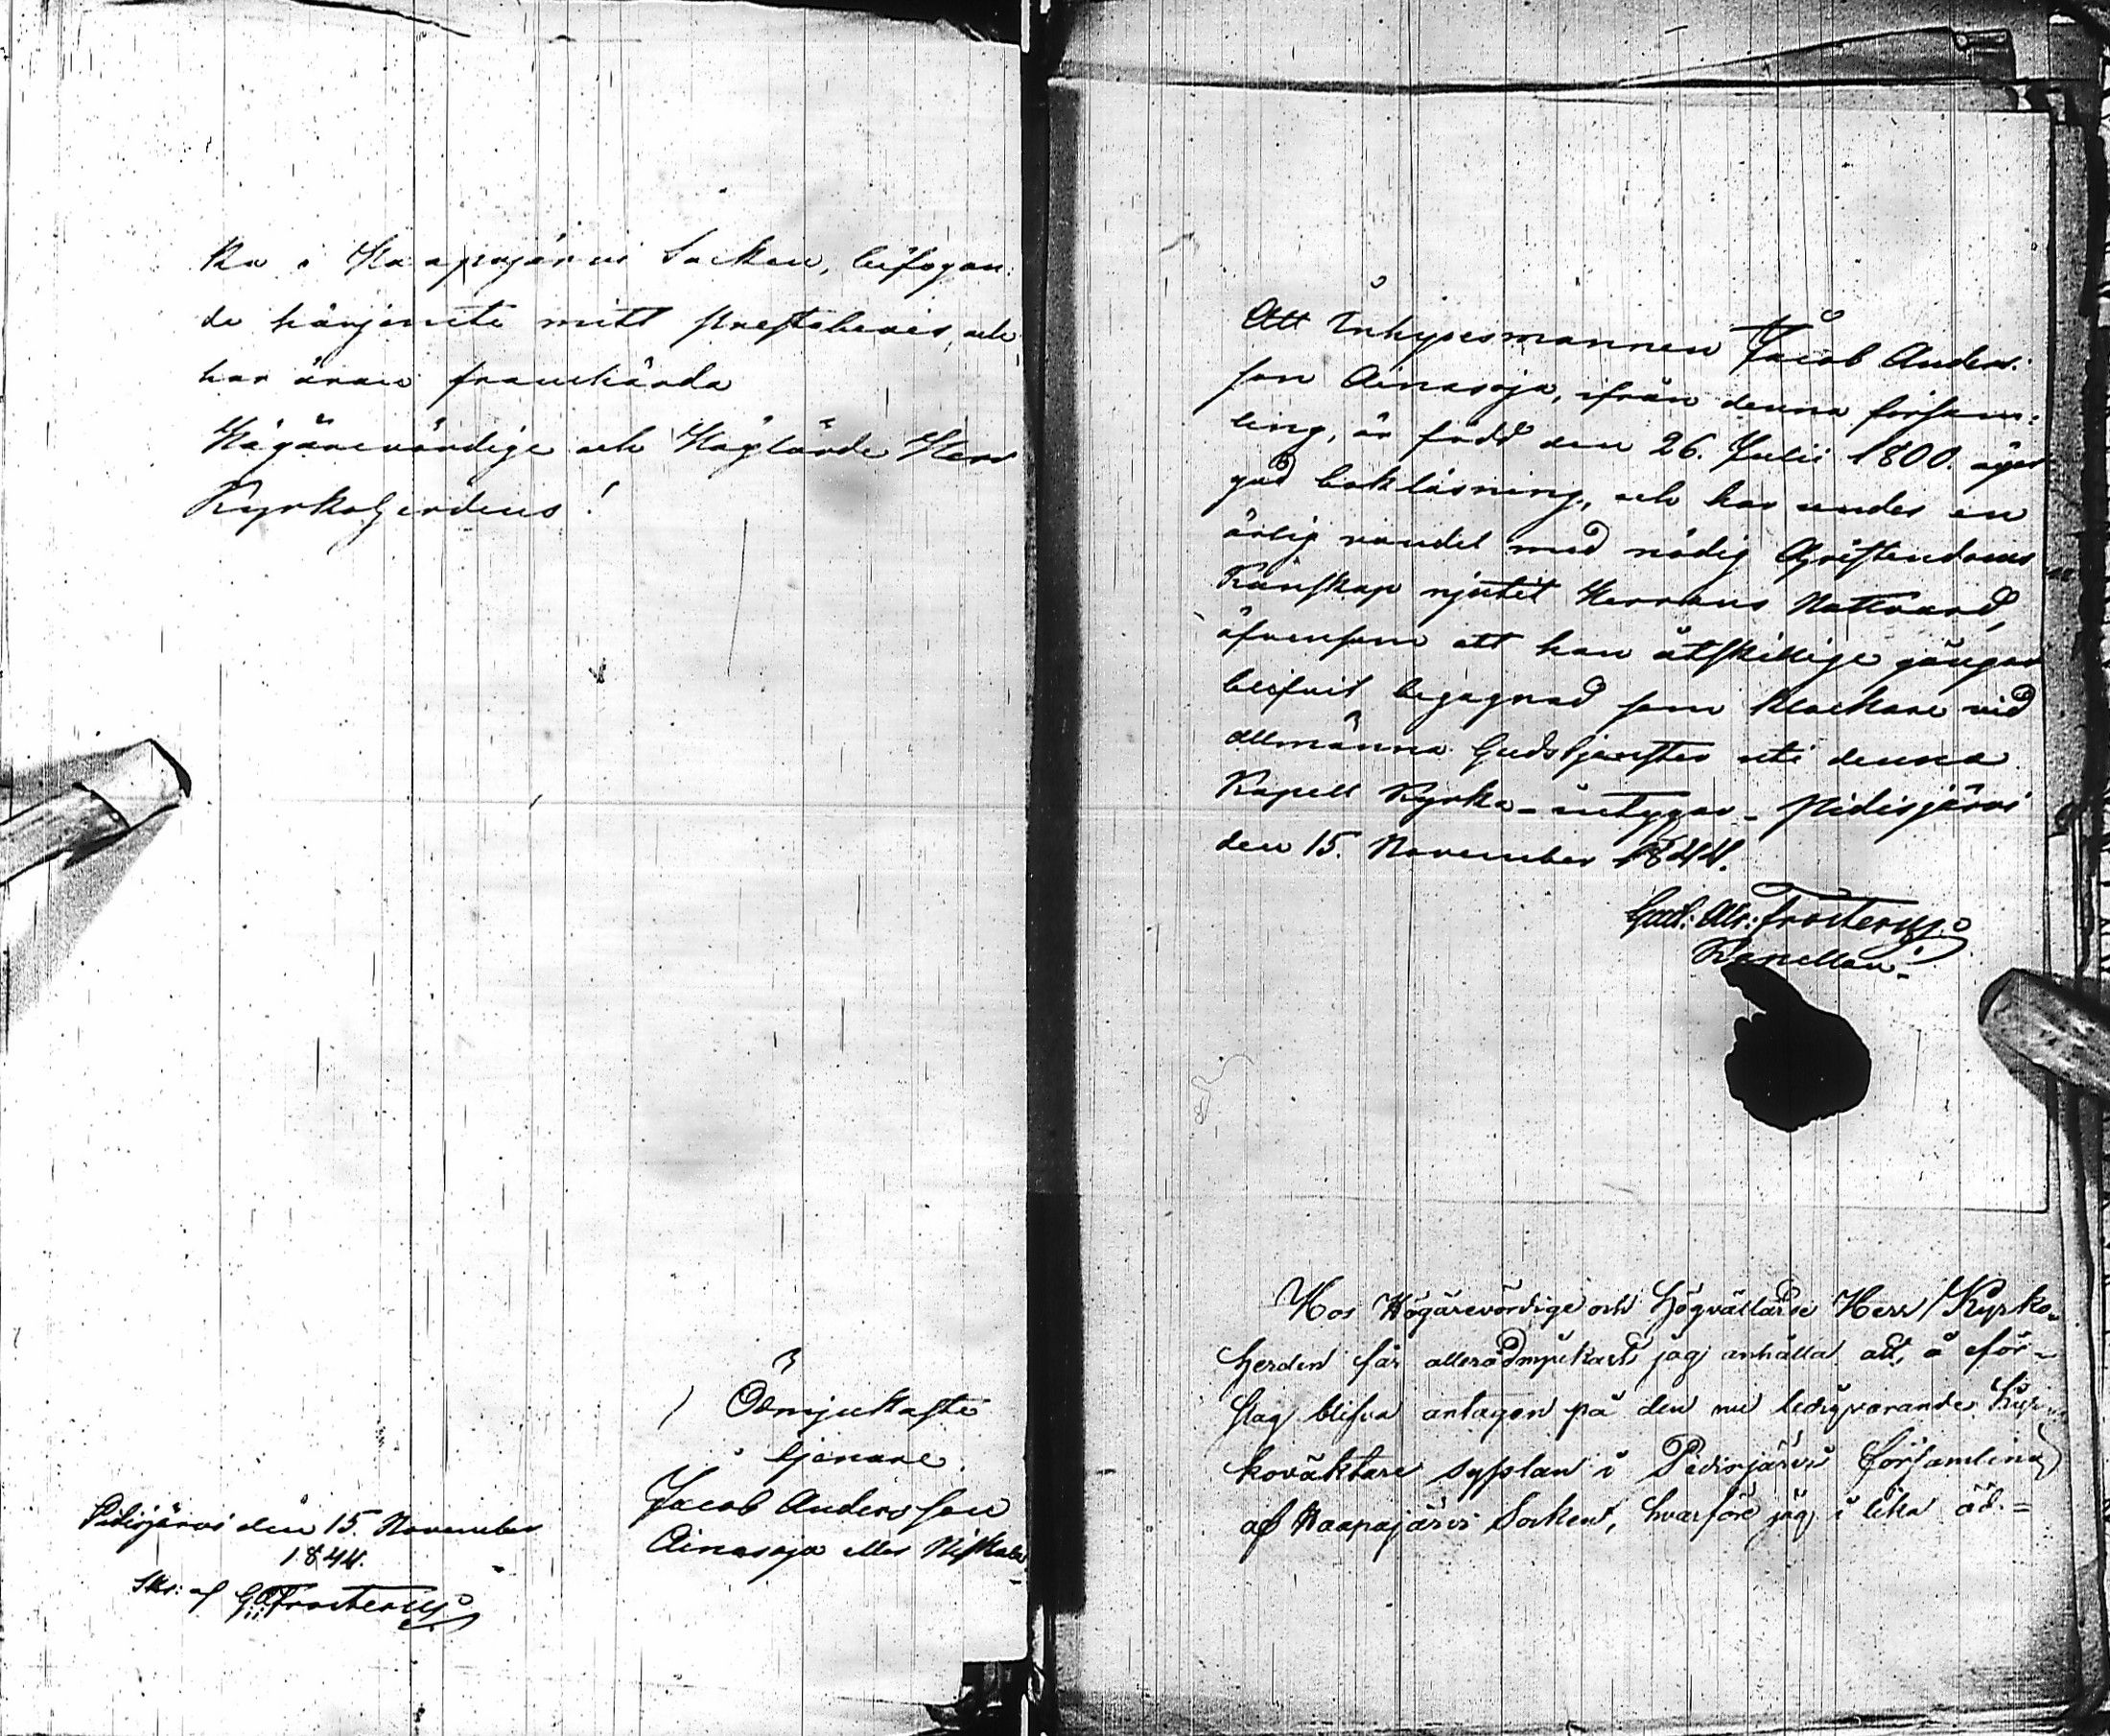 ka i Haapajärvi Socken, bifogan:
de härjemte mitt prestebevis, och
har äran framhärda
Högärevördige och Höglärde Herr
Kyrkoherdens!
Ödmjukaste
tjenare
Jacob Andersson
Ainasoja eller Niskala
Pidisjärvi den 15. November
1844.
Skr: af G A Frosterus
Att Inhysesmannen Jacob Anders:
son Ainasoja, ifrån denna försam:
ling, är född den 26. Julii 1800. äger
god bokläsning, och har under en
ärlig vandel med nödig Christendoms
Kunskap njutit Herrans Nattvard,
äfvensom att han åtskillige gånger
blifvit begagnad som klockare vid
allmänna Gudstjenster uti denna
Kapell Kyrka - intygar - Pidisjärvi
den 15. November 1844.
Gust: Adr: Frosterus
Kapellan
Hos Högärevördige och Högvällärde Herr Kyrko-
herden får allerödmjukast jag anhålla att, å eför-
slag blifva antagen på den nu ledigvarande Kyr
koväktare sysslan i Pidisjärvi Församling
af Haapajärvi Socken, hvarföre jag i lika öd=